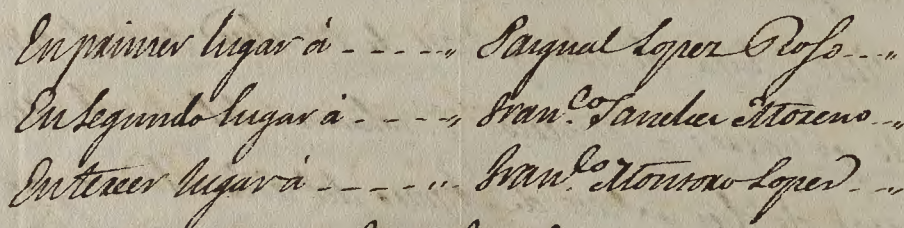 En primer lugar á - - - - „ Pasqual Lopez Roso - - „
En Segundo lugar á - - - - „ Fran.co Sanchez Moreno - „
En tercer lugar á - - - - „ Fran.co Montoro Lopez - „